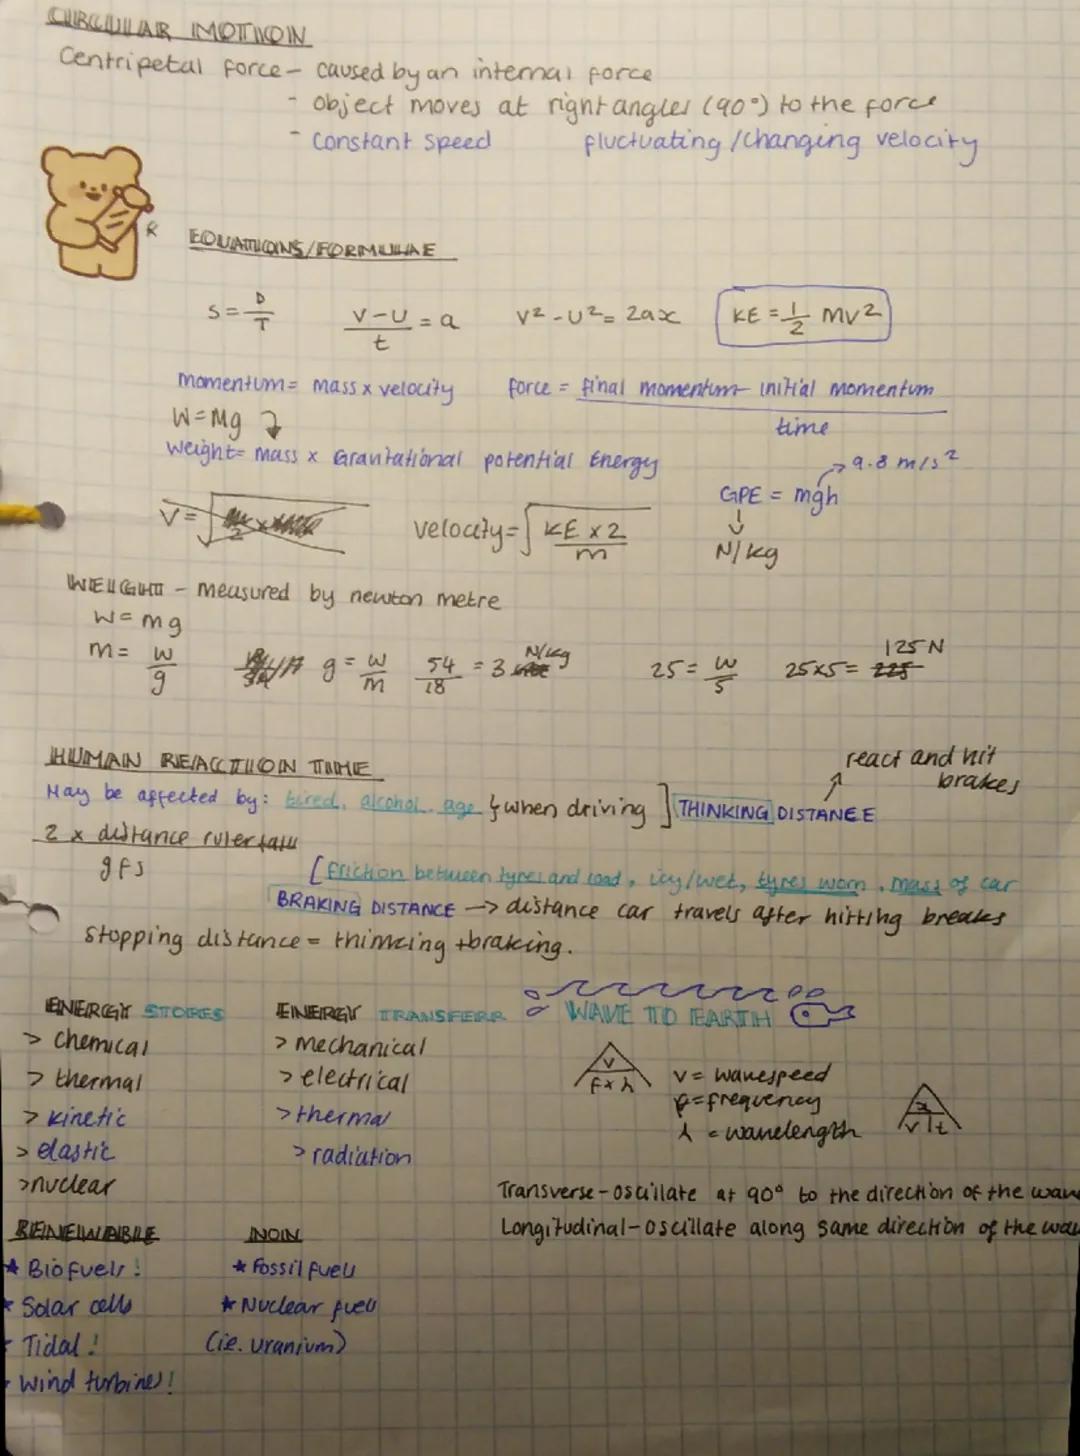 CIRCULAR MOTION
Centripetal force - caused by an internal force
- object moves at right angles (90°) to the force
- constant speed fluctuating / changing velocity
EQUATIONS/FORMULAE
S = D/T (V-U)/t = a V² - U² = 2ax KE = 1/2 MV²
momentum = mass x velocity force = (final momentum - initial momentum)/time
W = Mg
weight = mass x Gravitational potential Energy
9.8 m/s²
GPE = mgh
N/kg
V = √ velocity = √(KE x 2/m)
WEIGHT - measured by newton metre
W = mg
m = W/g g = W/m 54/18 = 3 N/kg 25 = W/5 25x5 = 225 125N
HUMAN REACTION TIME
react and hit brakes
May be affected by: tired, alcohol, age { when driving ] THINKING DISTANCE
2 x distance ruler fall
gfs
[ friction between tyres and road, icy/wet, tyres worn, mass of car
BRAKING DISTANCE → distance car travels after hitting breaks
stopping distance = thinking + braking.
ENERGY STORES
> chemical
> thermal
> kinetic
> elastic
> nuclear
ENERGY TRANSFERR
> mechanical
> electrical
> thermal
> radiation
WAVE TO EARTH
V
f x λ
V = wavespeed
f = frequency
λ = wavelength
x
v t
Transverse - oscillate at 90° to the direction of the wave
Longitudinal - oscillate along same direction of the
RENEWABLE
* Biofuels!
* Solar cells
* Tidal!
* Wind turbines!
NON
* Fossil fuels
* Nuclear fuels
(ie. uranium)